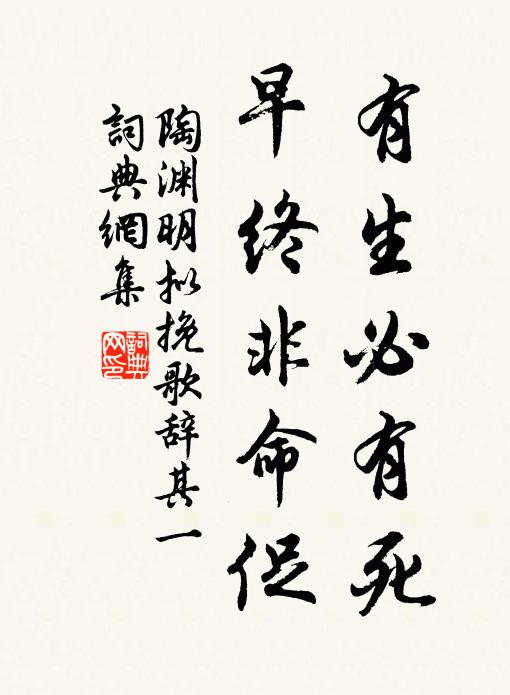 有生必有死
早终非命促
陶渊明拟挽歌辞其一
詞典網集
詞典网印